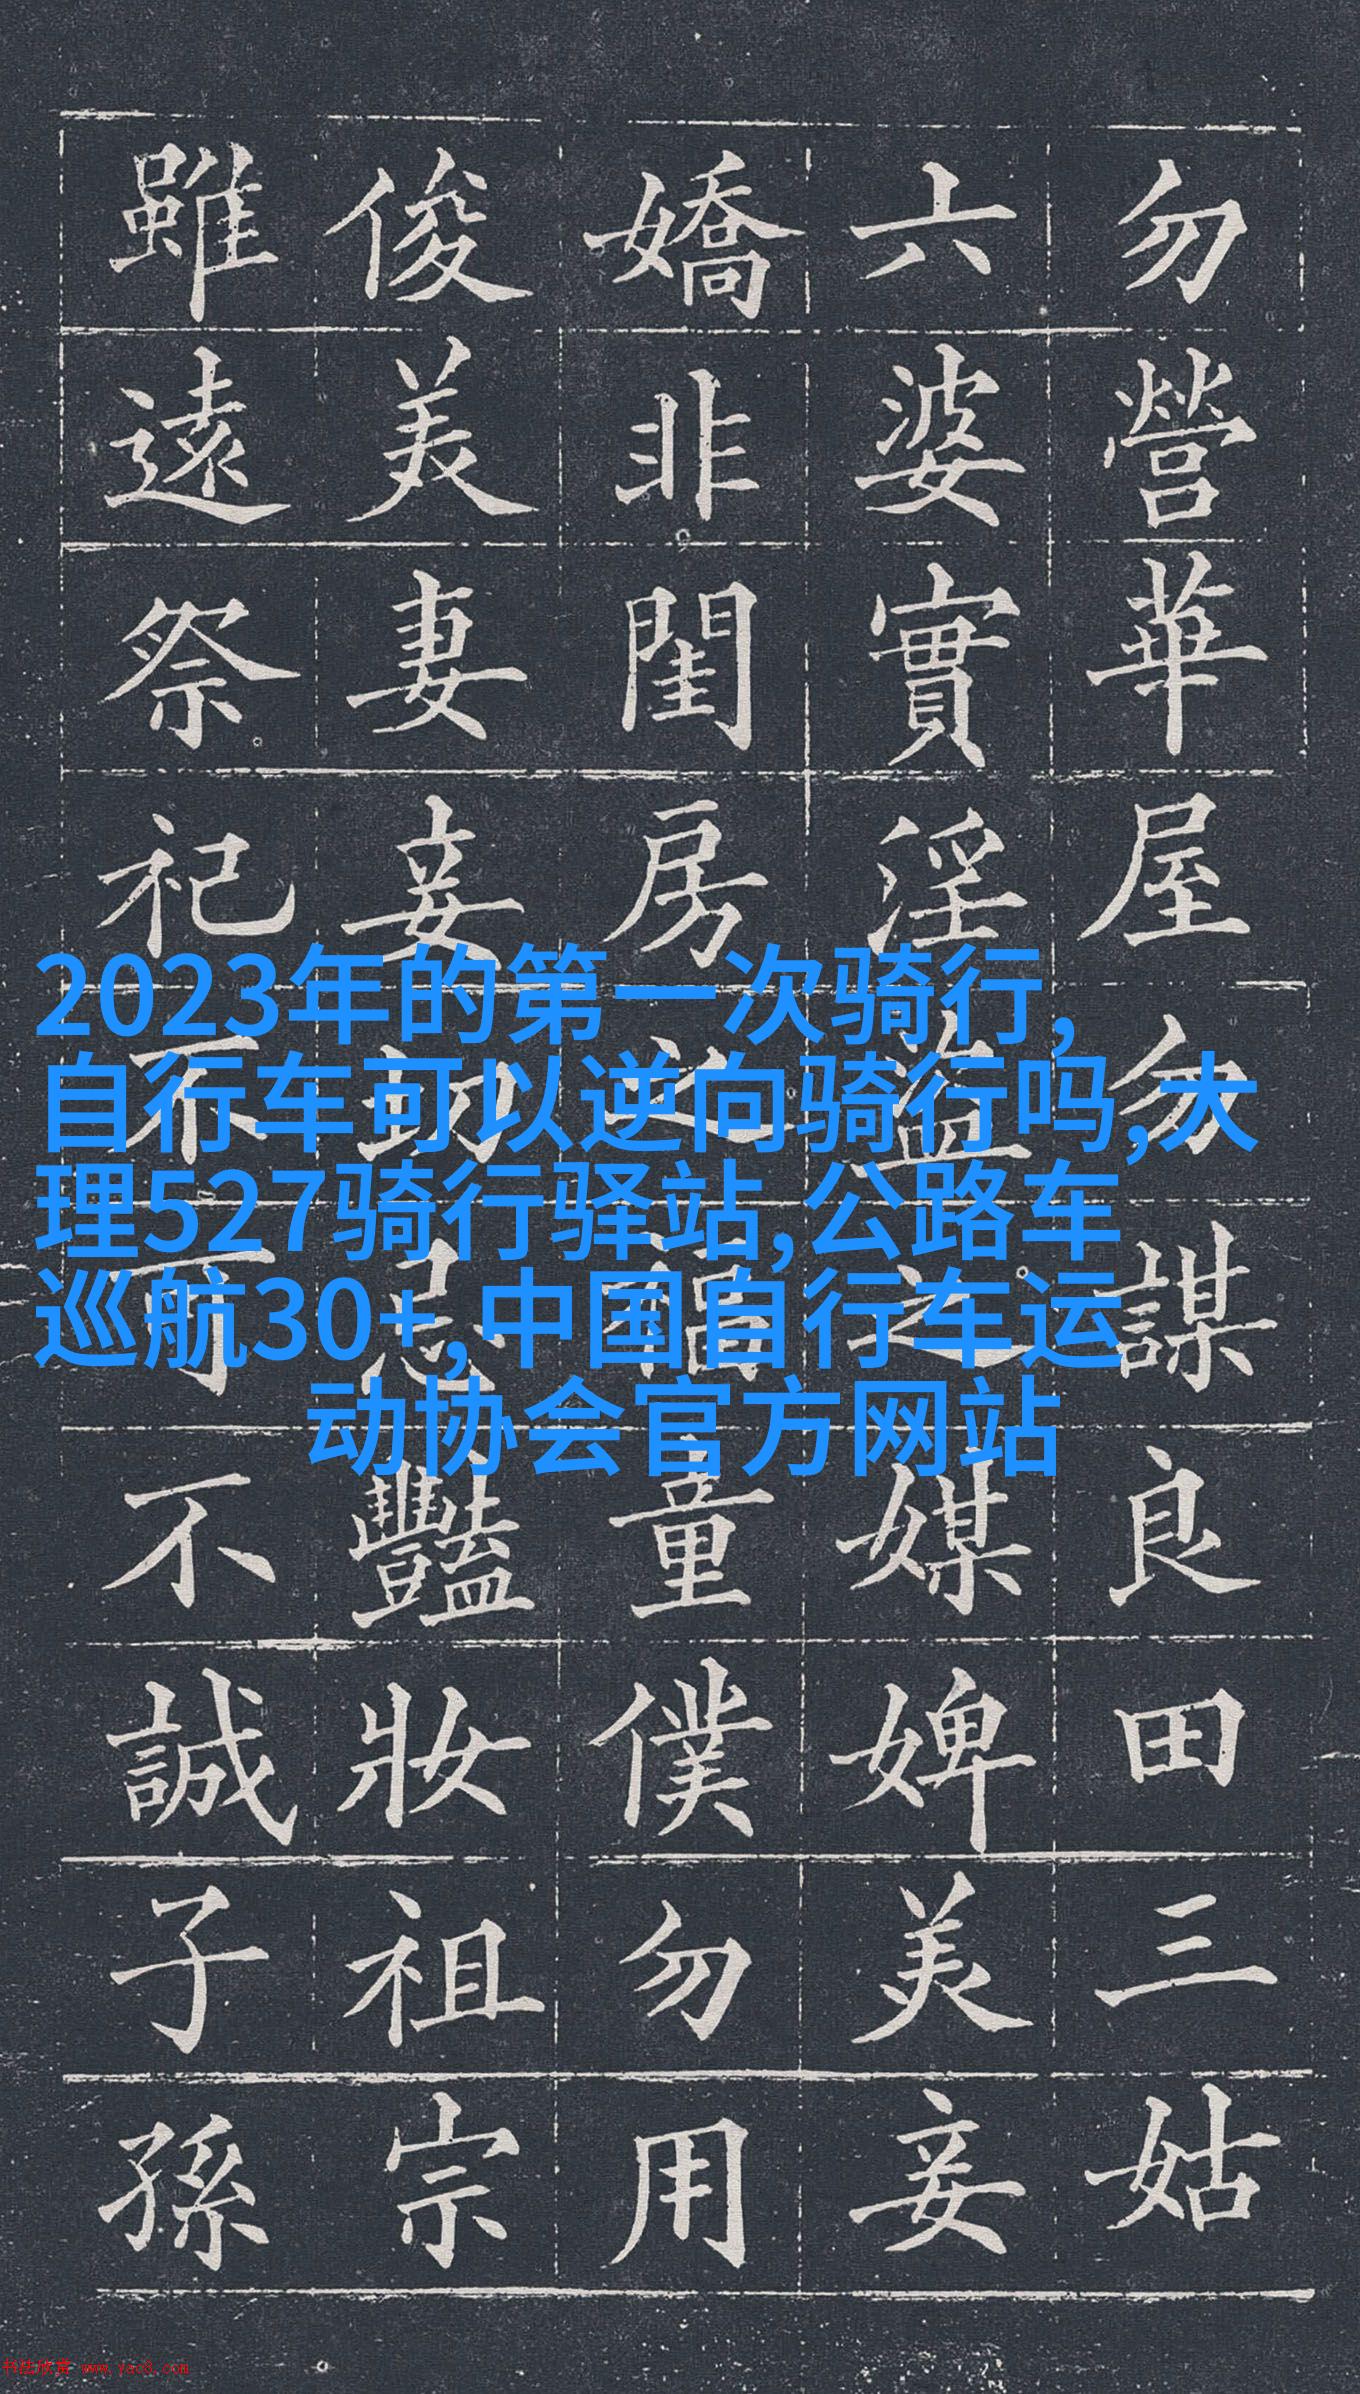 勿營華屋勿謀良田三姑
六婆實淫盜之媒婢美妾
嬌非閨房之福童僕勿用
俊美妻妾切忌豔妝祖宗
雖遠祭祀不可不誠子孫
2023年的第一次骑行,
自行车可以逆向骑行吗,大
理527骑行驿站,公路车
巡航30+,中国自行车运
动协会官方网站
书法欣赏 www.yac8.com